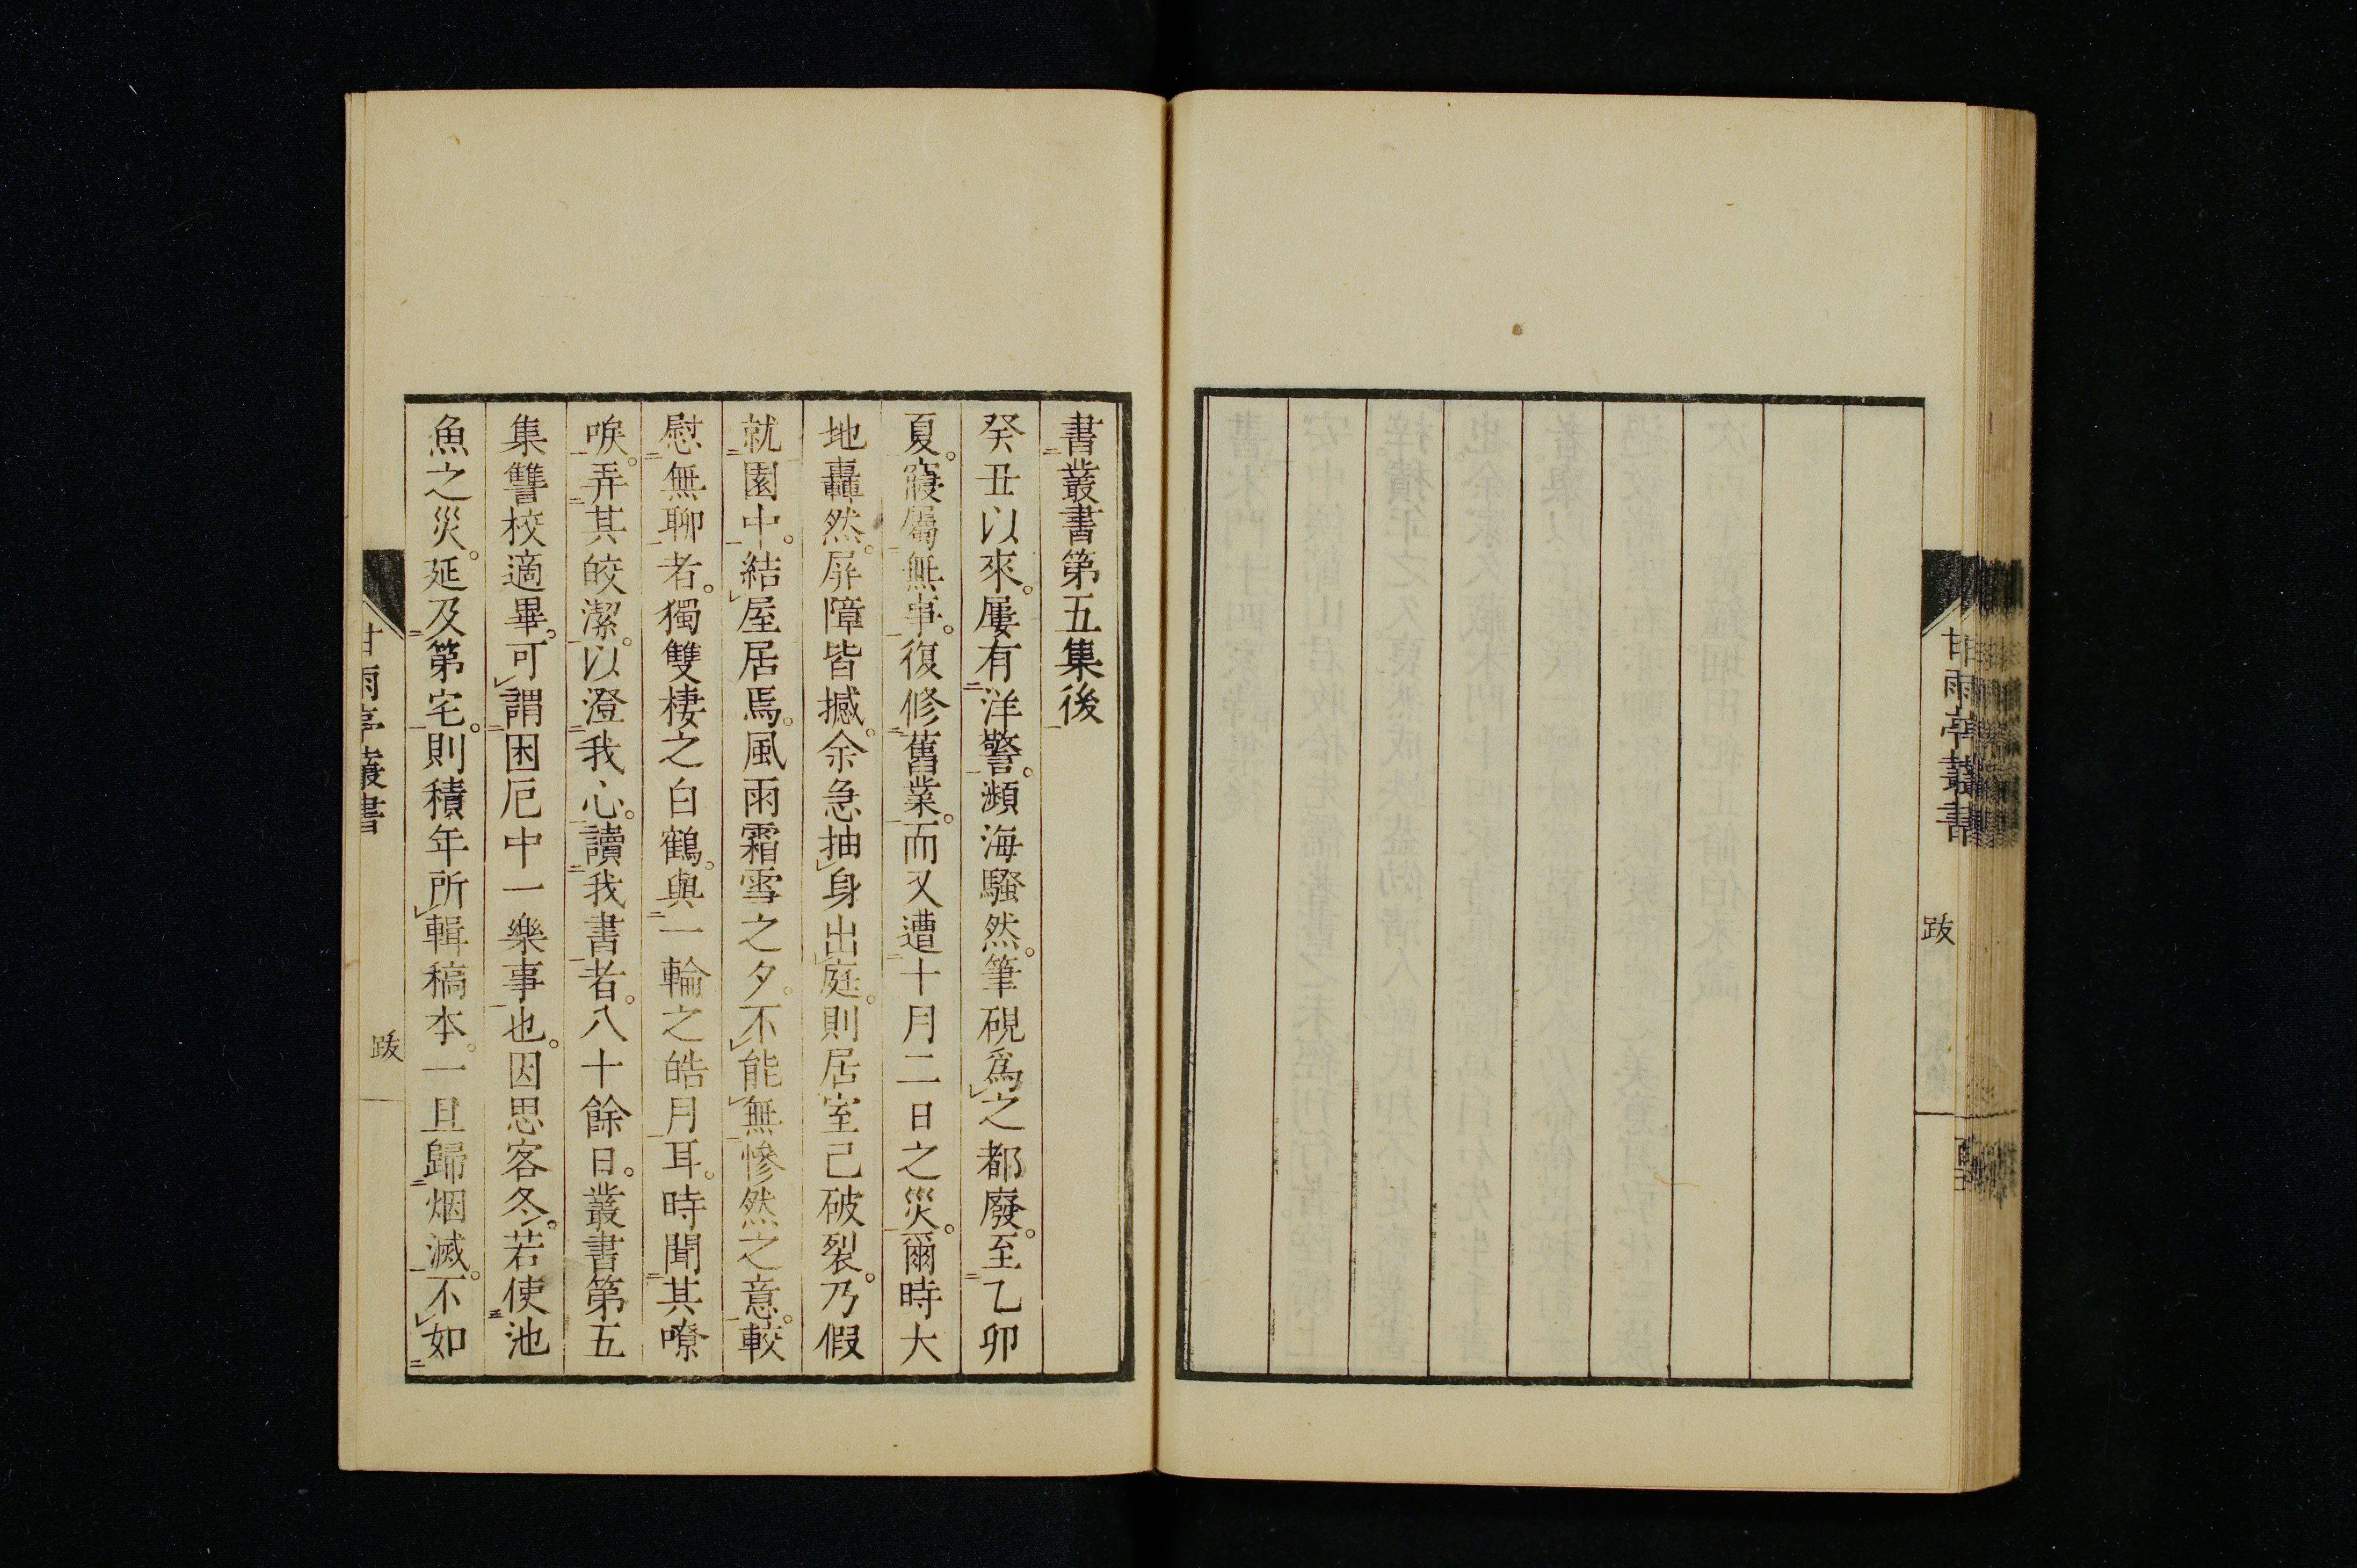 甘雨亭叢書
跋
書叢書第五集後
癸丑以來。屢有洋警。瀕海騷然。筆硯爲之都廢。至乙卯
夏。寢屬無事。復修舊業。而又遭十月二日之災。爾時大
地轟然。屏障皆撼。余急抽身出庭。則居室已破裂。乃假
就園中。結屋居焉。風雨霜雪之夕。不能無慘然之意。較
慰無聊者。獨雙棲之白鶴。與一輪之皓月耳。時聞其嘹
唳。弄其皎潔。以澄我心。讀我書者。八十餘日。叢書第五
集讐校適畢。可謂困厄中一樂事也。因思客冬。若使池
魚之災。延及第宅。則積年所輯稿本。一旦歸烟滅。不如
甘雨亭叢書
跋